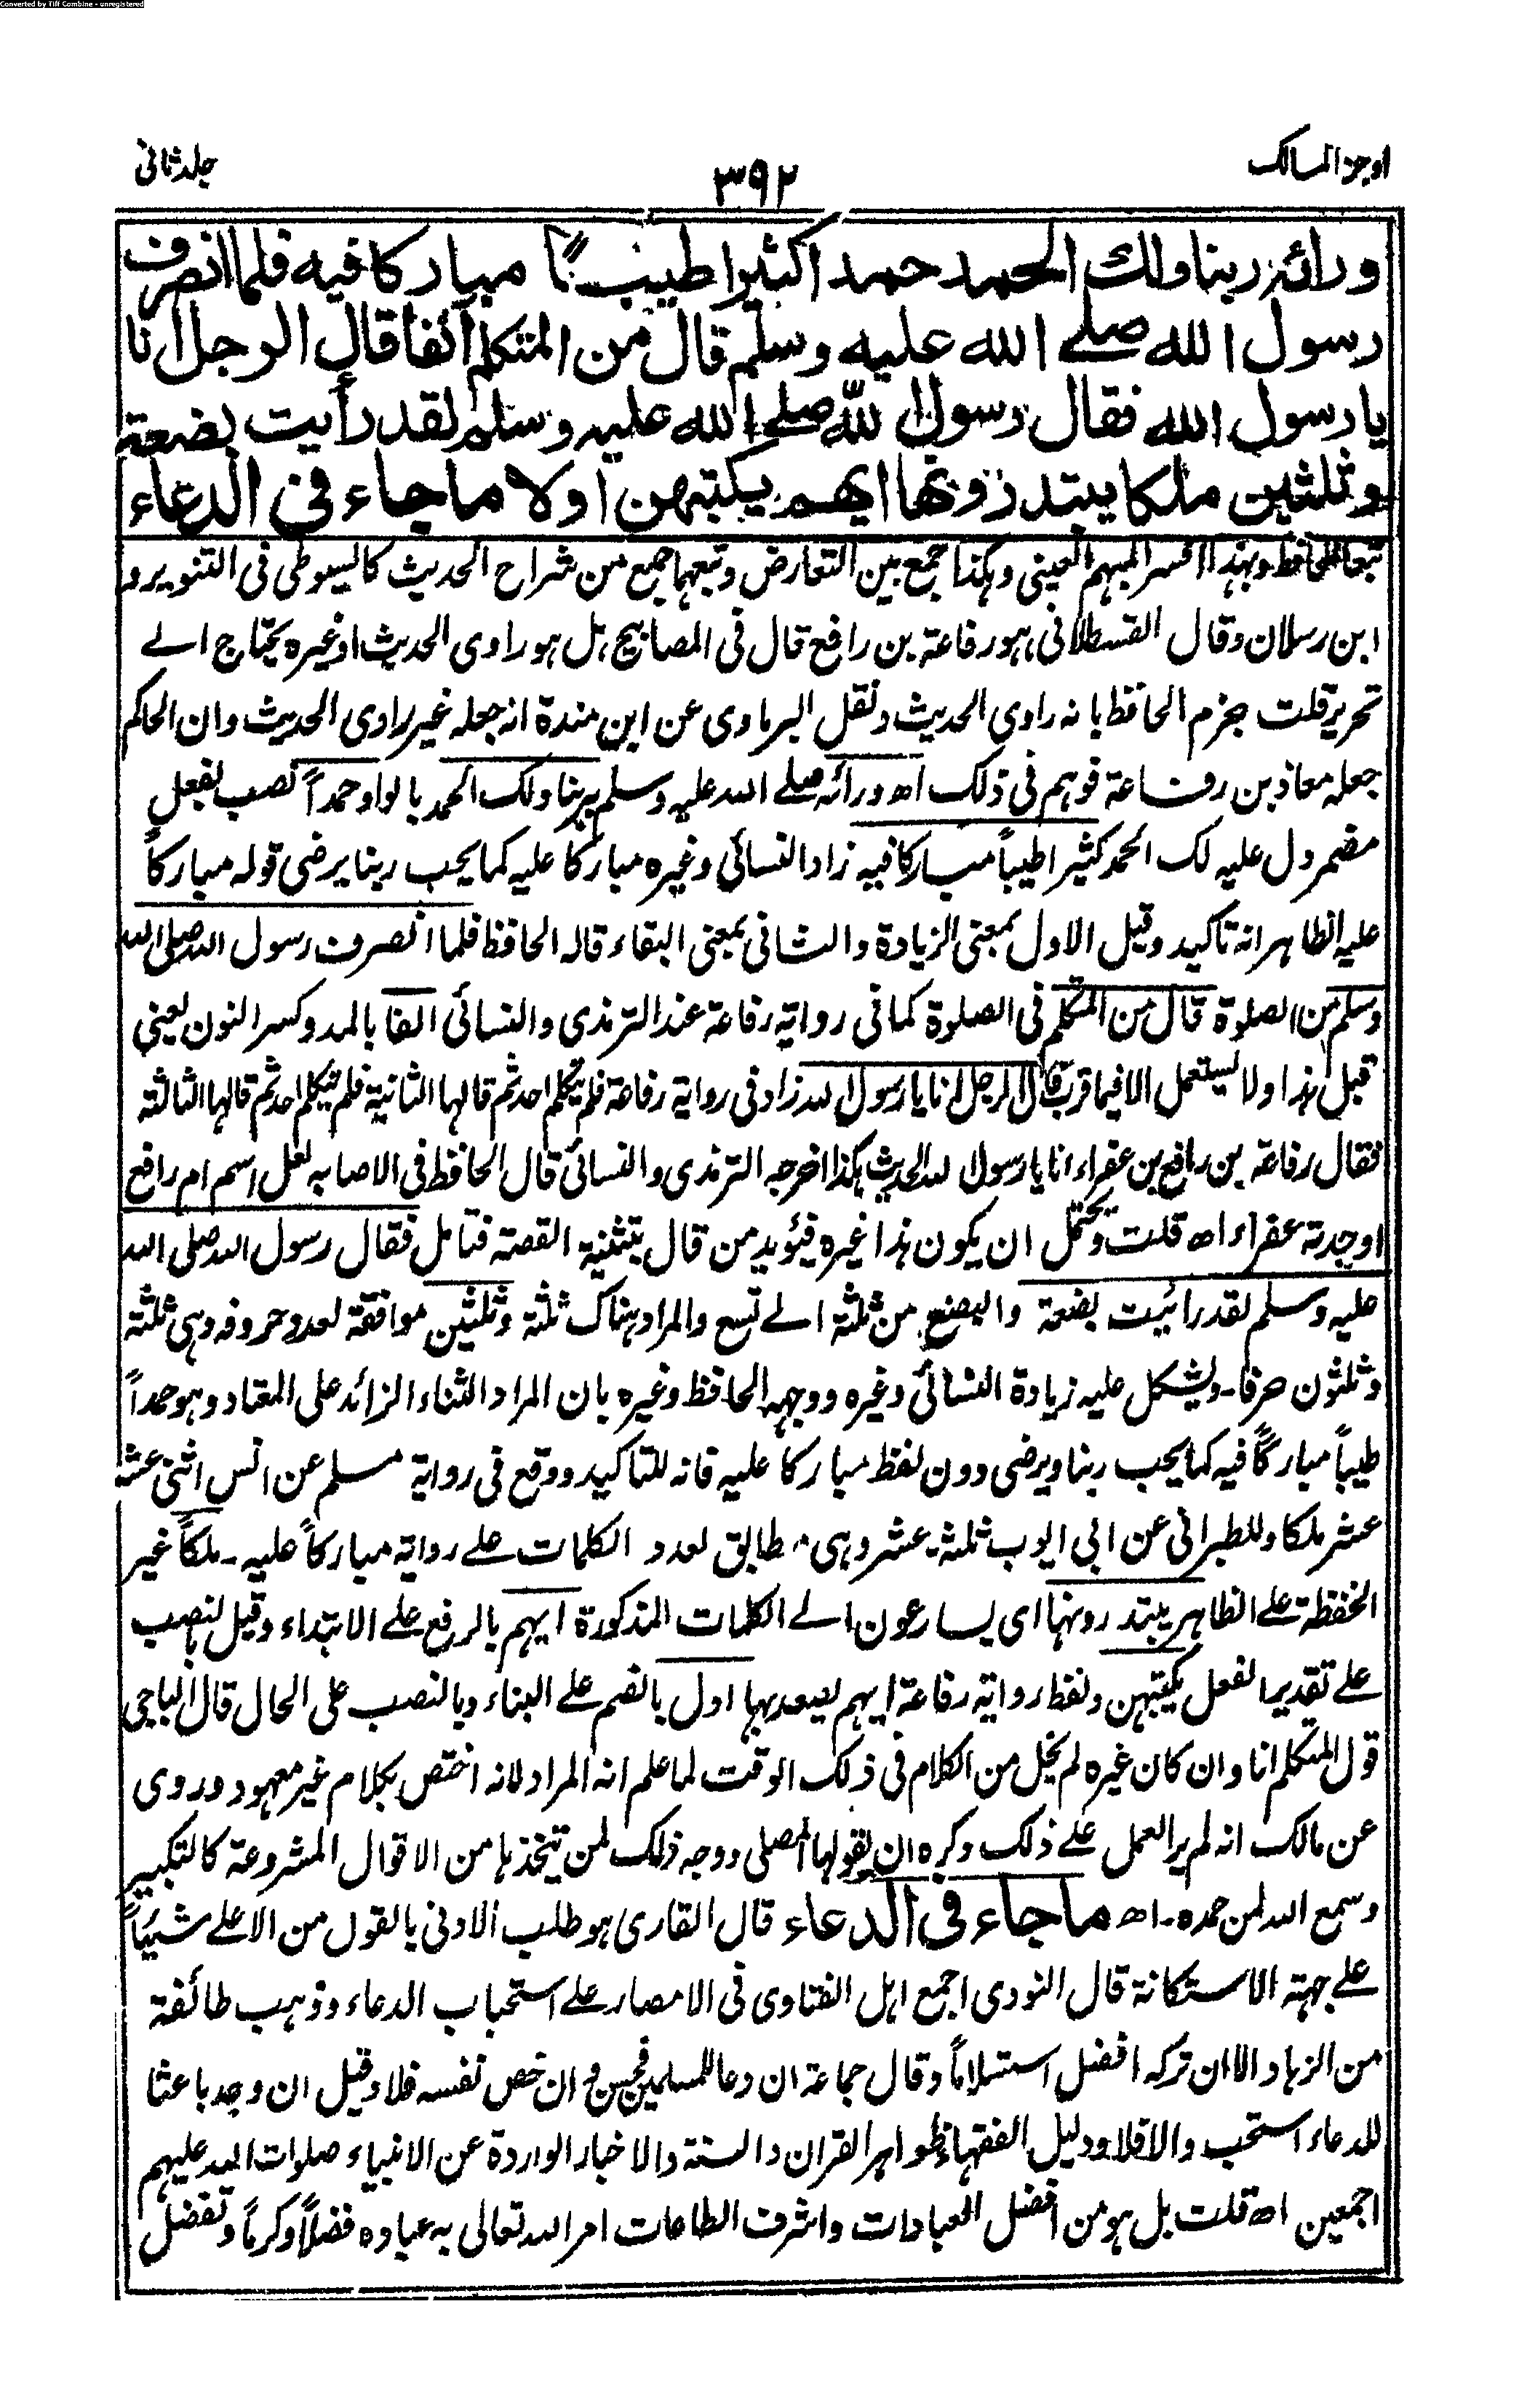 Converted by Tiff Combine - unregistered
اوجز المسالك
٣٩٢
جلد ثانی
ورائه ربنا ولك الحمد حمدا كثيرا طيبا مباركا فيه فلما انصرف
رسول الله صلے الله عليه وسلم قال من المتكلم آنفا قال الرجل انا
يا رسول الله فقال رسول الله صلے الله عليه وسلم لقد رأيت بضعة
وثلثين ملكا يبتدرونها ايهم يكتبهن اولا ما جاء فى الدعاء
تبعا للحافظ وبهذا افسر المبهم العينى وهكذا جمع بين التعارض وتبعهما جمع من شراح الحديث كالسيوطى فى التنوير و
ابن رسلان وقال القسطلانى هو رفاعة بن رافع قال فى المصابيح هل هو راوى الحديث او غيره يحتاج الے
تحرير قلت جزم الحافظ بانه راوى الحديث ونقل البرماوى عن ابن مندة انه جعله غير راوى الحديث وان الحاكم
جعله معاذ بن رفاعة فوهم فى ذلك اھ ورائه صلے الله عليه وسلم ربنا ولك الحمد بالواو حمداً نصب بفعل
مضمر دل عليه لك الحمد كثيرا طيباً مباركا فيه زاد النسائى وغيره مباركا عليه كما يحب ربنا يرضى قوله مباركاً
عليه الظاهر انه تاكيد وقيل الاول بمعنى الزيادة والثانى بمعنى البقاء قاله الحافظ فلما انصرف رسول الله صلى الله
وسلم من الصلوة قال من المتكلم فى الصلوة كما فى رواية رفاعة عند الترمذى والنسائى آنفا بالمد وكسر النون يعنى
قبل هذا ولا يستعمل الا فيما قرب قال الرجل انا يا رسول الله زاد فى رواية رفاعة فلم يتكلم احد ثم قالها الثانية فلم يتكلم احد ثم قالها الثالثة
فقال رفاعة بن رافع بن عفراء انا يا رسول الله الحديث هكذا اخرجه الترمذى والنسائى قال الحافظ فى الاصابه لعل اسم ام رافع
او جدته عفراء اھ قلت ويحتمل ان يكون هذا غيره فيؤيد من قال بتثنية القصة فتامل فقال رسول الله صلى الله
عليه وسلم لقد رائيت بضعة والبضع من ثلثة الے تسع والمراد هناك ثلثة وثلثين موافقة لعدد حروفه وهى ثلثة
وثلثون حرفا۔ ويشكل عليه زيادة النسائى وغيره ووجهه الحافظ وغيره بان المراد الثناء الزائد على المعتاد وهو حمداً
طيباً مباركاً فيه كما يحب ربنا ويرضى دون لفظ مباركا عليه فانه للتاكيد ووقع فى رواية مسلم عن انس اثنى عشر
عشر ملكا وللطبرانى عن ابى ايوب ثلثة عشر وهى مطابق لعدد الكلمات علے رواية مباركاً عليه۔ ملكاً غير
الحفظة علے الظاهر يبتدرونها اى يسارعون الے الكلمات المذكورة ايهم بالرفع علے الابتداء وقيل بالنصب
علے تقدير الفعل يكتبهن ولفظ رواية رفاعة ايهم يصعد بها اول بالضم علے البناء وبالنصب على الحال قال الباجى
قول المتكلم انا وان كان غيره لم يخل من الكلام فى ذلك الوقت لما علم انه المراد لانه اختص بكلام غير معهود وروى
عن مالك انه لم ير العمل علے ذلك وكره ان يقولها المصلى ووجه ذلك لمن يتخذها من الاقوال المشروعة كالتكبير
وسمع الله لمن حمده۔ اھ ما جاء فى الدعاء قال القارى هو طلب الادنى بالقول من الاعلے شيئاً
علے جهة الاستكانة قال النووى اجمع اهل الفتاوى فى الامصار علے استحباب الدعاء وذهب طائفة
من الزهاد الا ان تركه افضل استسلاماً وقال جماعة ان دعا للمسلمين فحسن وان خص نفسه فلا وقيل ان وجد باعثا
للدعاء استحب والا فلا ودليل الفقهاء ظواهر القران والسنة والاخبار الواردة عن الانبياء صلوات الله عليهم
اجمعين اھ قلت بل هو من افضل العبادات واشرف الطاعات امر الله تعالى به عباده فضلاً وكرماً وتفضل